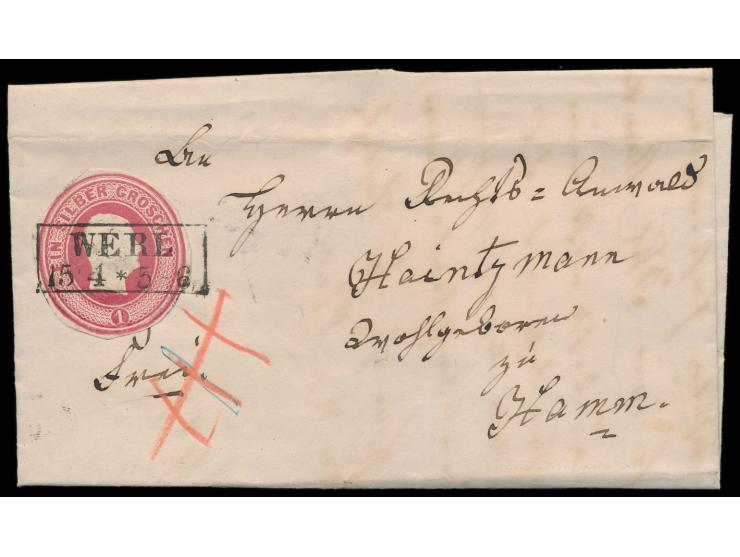 An
Herrn Rechts=Anwald
Haintzmann
Wohlgeboren
zu
Hamm.
EIN SILBER GROSCHEN
WERL
15 4 * 5 6
1
Frei.